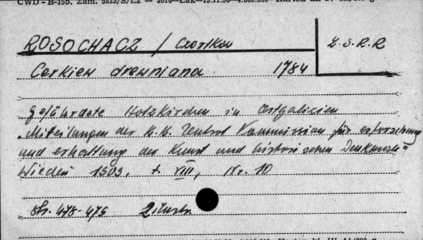 CWD - B-15b. Zam.
ROSOCHACZ / Czortków
Z.S.R.R
Cerkiew drewniana 1784
Gefährdete Holzkirchen in Ostgalizien
"Mitteilungen der K.K. Zentral Kommission für erforschung
und erhaltung der Kunst und historischen Denkmale"
Wiedeń 1909, t. VIII, Nr. 10
Str. 478-479 2 ilustr.